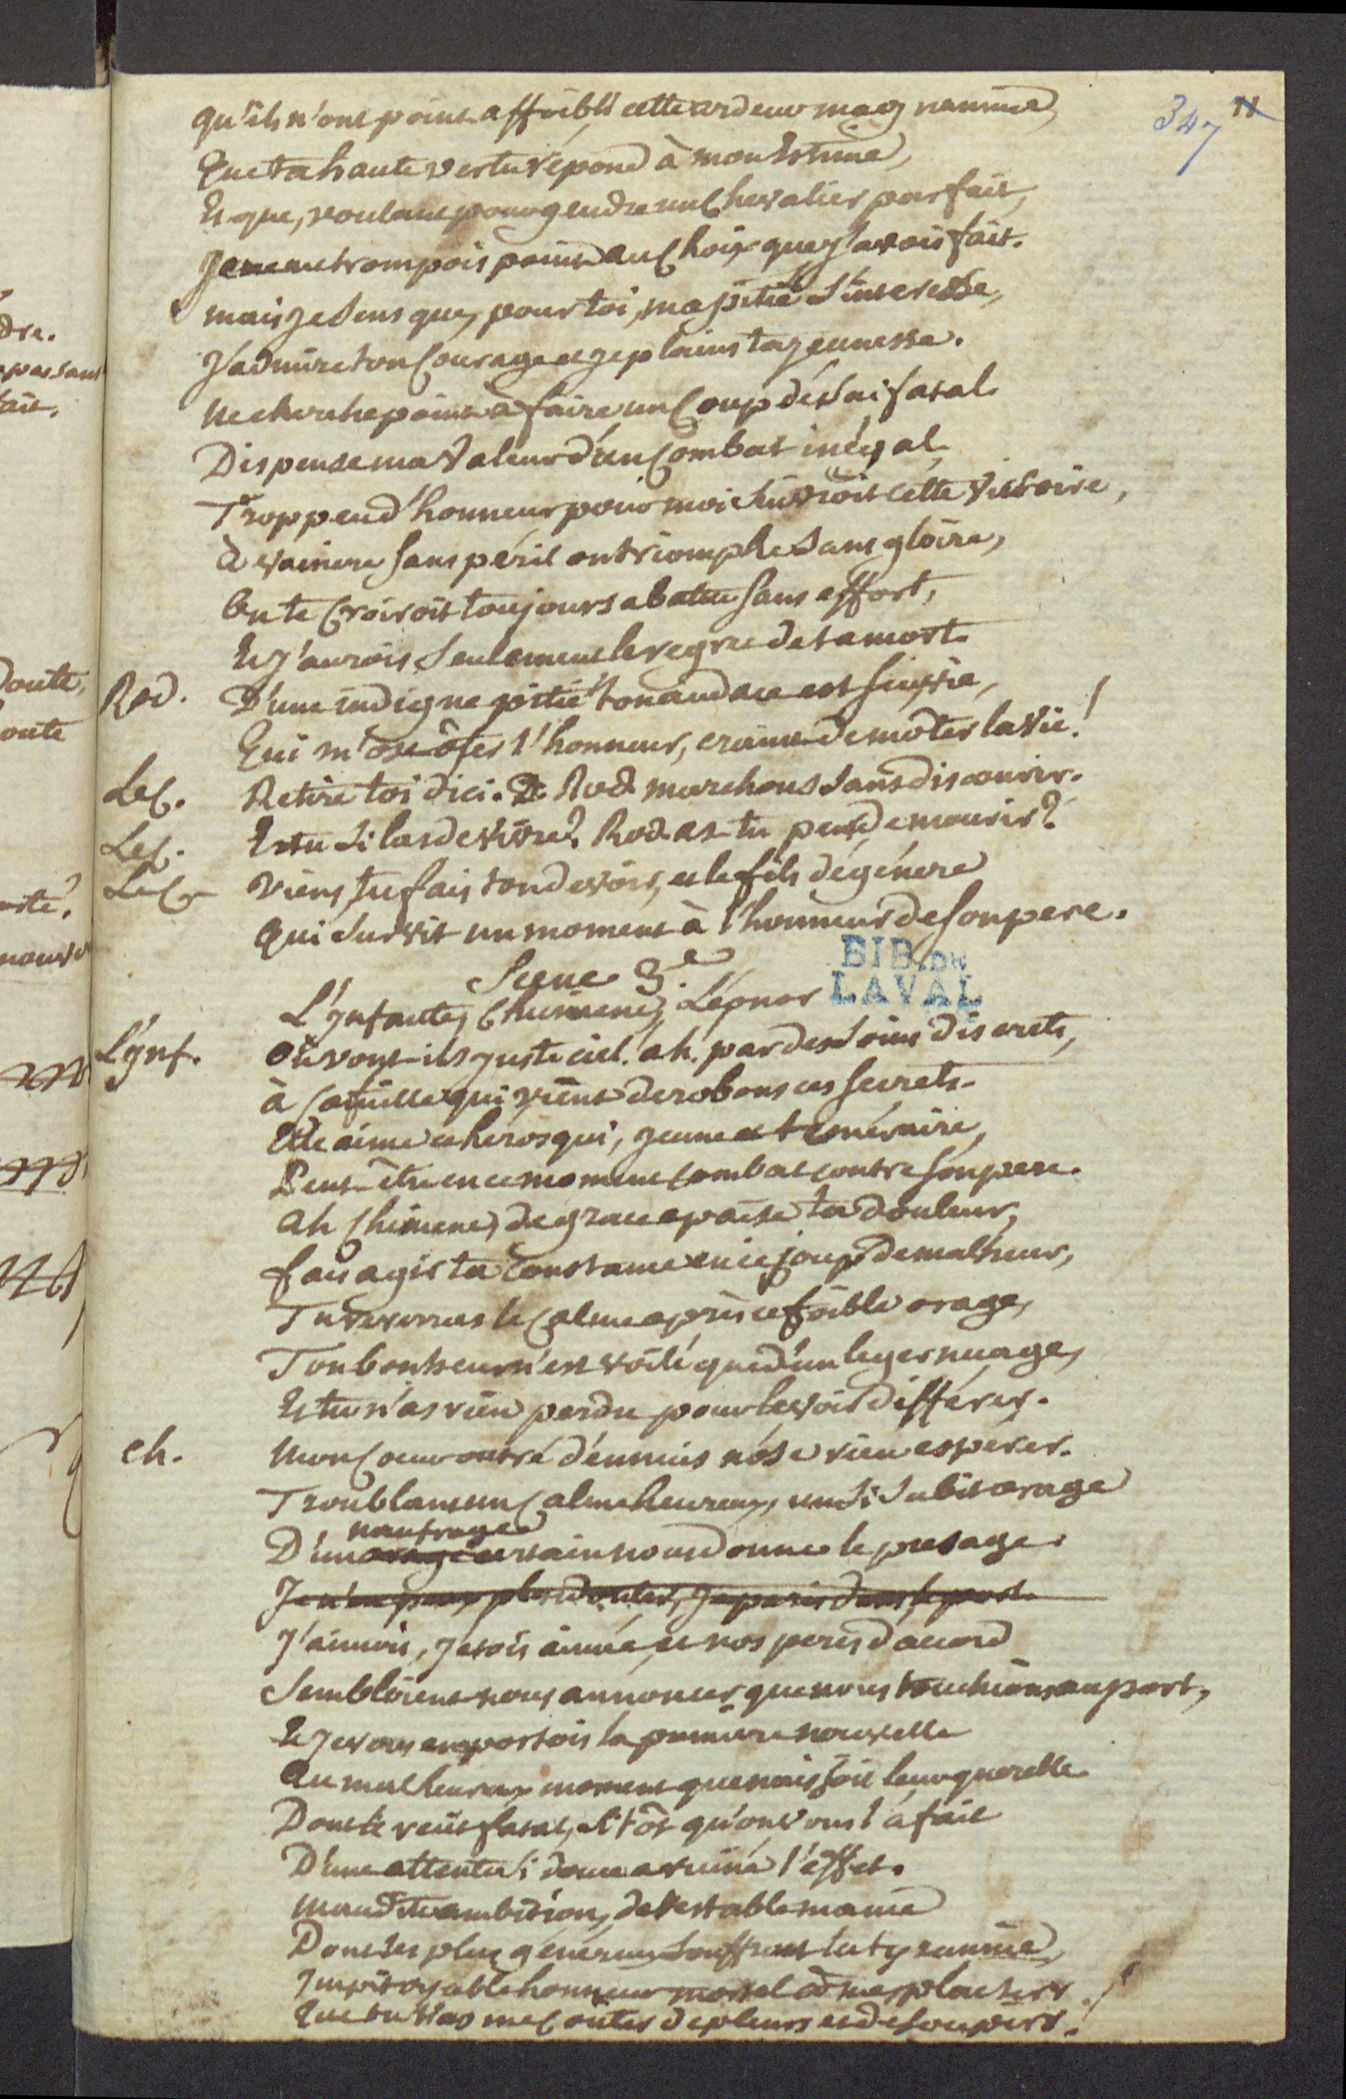 347 11
qu'ils n'ont point affoibli cette ardeur magnanime,
Que ta haute vertu répond à mon estime,
Et que, voulant pour gendre un Chevalier parfait,
Je ne me trompois point au Choix que j'avois fait.
mais je sens que, pour toi, ma pitié s'interesse,
J'admire ton Courage et je plains ta jeunesse.
Ne cherche point à faire un Coup d'essai fatal.
Dispense ma Valeur d'un Combat inégal,
Trop peu d'honneur pour moi suivroit cette Victoire,
à vaincre sans péril on triomphe sans gloire,
On te Croiroit toujours abatu sans effort,
Et j'aurois seulement le regret de ta mort.
Rod. D'une indigne pitié ton audace est suivie,
Qui m'ose ôter l'honneur, craint de m'oter la vie!
Le C. Retire toi d'ici. Rod. marchons sans discourir.
Le C. Es tu si las de vivre? Rod. as-tu peur de mourir?
Le C. Viens, tu fais ton devoir, et le fils dégénere
Qui survit un moment à l'honneur de son pere.
Scene 3.e
L'ynfante, Chimene, Léonor
BIB. DE
LAVAL
L'ynf. Où vont-ils juste ciel. ah. par des soins discrets,
à Camille qui vient derobons ces secrets.
Elle aime ce héros qui, jeune et téméraire,
Peut-être en ce moment combat contre son pere.
ah Chimene, de grace apaise ta douleur,
fais agir ta constance en ce coup de malheur,
Tu reverras le Calme après ce foible orage,
Ton bonheur n'est voilé que d'un leger nuage,
Et tu n'as rien perdu pour le voir différer.
Ch. Mon Coeur outré d'ennuis n'ose rien esperer.
Troublant un Calme heureux, un si subit orage
naufrage
D'un orage certain nous donne le presage.
Je n'en puis plus douter, je péris dans le port.
J'aimois, j'etois aimée, et nos peres d'accord
Sembloient nous annoncer que nous touchions au port,
Et je vous en portois la premiere nouvelle
Au malheureux moment que naissoit leur querelle
Dont le récit fatal, sitôt qu'on vous l'a fait
D'une attente si douce a ruiné l'effet.
Maudite ambition, detestable manie
Dont les plus généreux souffrent la tyrannie,
Impitoyable honneur mortel à mes plaisirs
Que tu vas me Couter de pleurs et de soupirs!